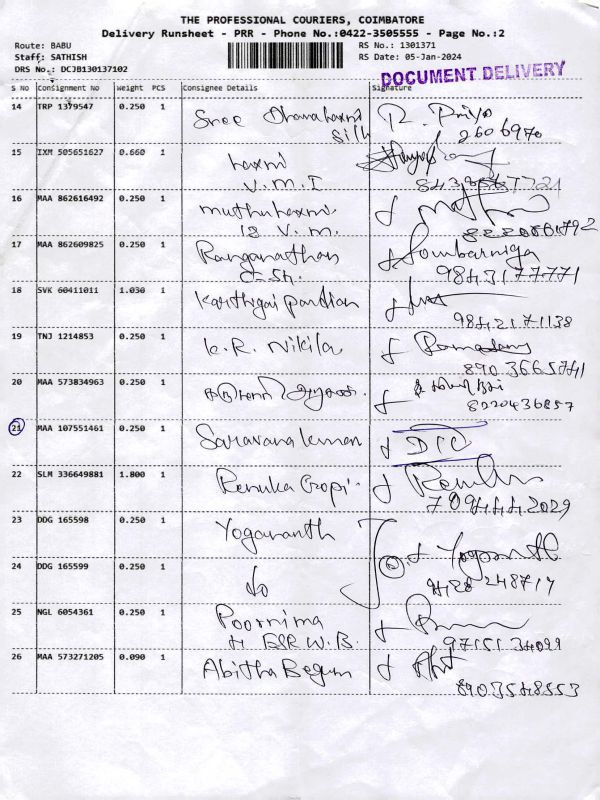 THE PROFESSIONAL COURIERS, COIMBATORE
Delivery Runsheet - PRR - Phone No.:0422-3505555 - Page No.:2
Route: BABU
Staff: SATHISH
DRS No.: DCJB130137102
RS No.: 1301371
RS Date: 05-Jan-2024
DOCUMENT DELIVERY
S No Consignment No Weight PCS Consignee Details Signature
14 TRP 1379547 0.250 1 Sree Dhanalaxmi R. Priya
Silk 2606970
15 IXM 505651627 0.660 1 Laxmi
V.M.I
16 MAA 862616492 0.250 1 Muthulaxmi
18 V.M.
17 MAA 862609825 0.250 1 Ranganathan
9843177771
18 SVK 60411011 1.030 1 Karthgai Pandian
9842171138
19 TNJ 1214853 0.250 1 K.R. Nikila
890 3665741
20 MAA 573834963 0.250 1
8220436857
21 MAA 107551461 0.250 1 Saravana Kumar
22 SLM 336649881 1.800 1 Renuka Gopi
7094442029
23 DDG 165598 0.250 1 Yogananth
24 DDG 165599 0.250 1 do
25 NGL 6054361 0.250 1 Poornima
97151 34099
26 MAA 573271205 0.090 1 Abitha Begum
8903548553